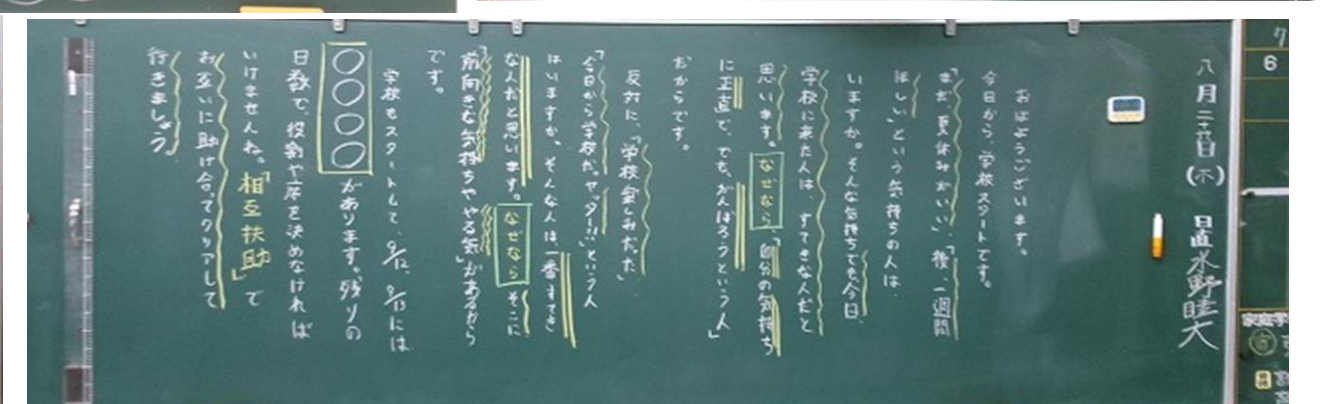 八月二十六日(木) 日直 水野睦大
おはようございます。
今日から、学校スタートです。
「まだ、夏休みがいい」、「後、一週間
ほしい」という気持ちの人は、
いますか。そんな気持ちでも今日、
学校に来た人は、すてきなんだと
思います。なぜなら、「自分の気持ち
に正直で、でも、がんばろうという人」
だからです。
反対に、「学校楽しみだった」
「今日から学校だ。ヤッター!!」という人
はいますか。そんな人は、一番すてき
なんだと思います。なぜなら、そこに
「前向きな気持ちややる気」があるから
です。
学校もスタートして、9/12、9/13には
○○○○があります。残りの
日数で、役割や席を決めなければ
いけませんね。「相互扶助」で
お互いに助け合ってクリアして
行きましょう。
6
家庭学